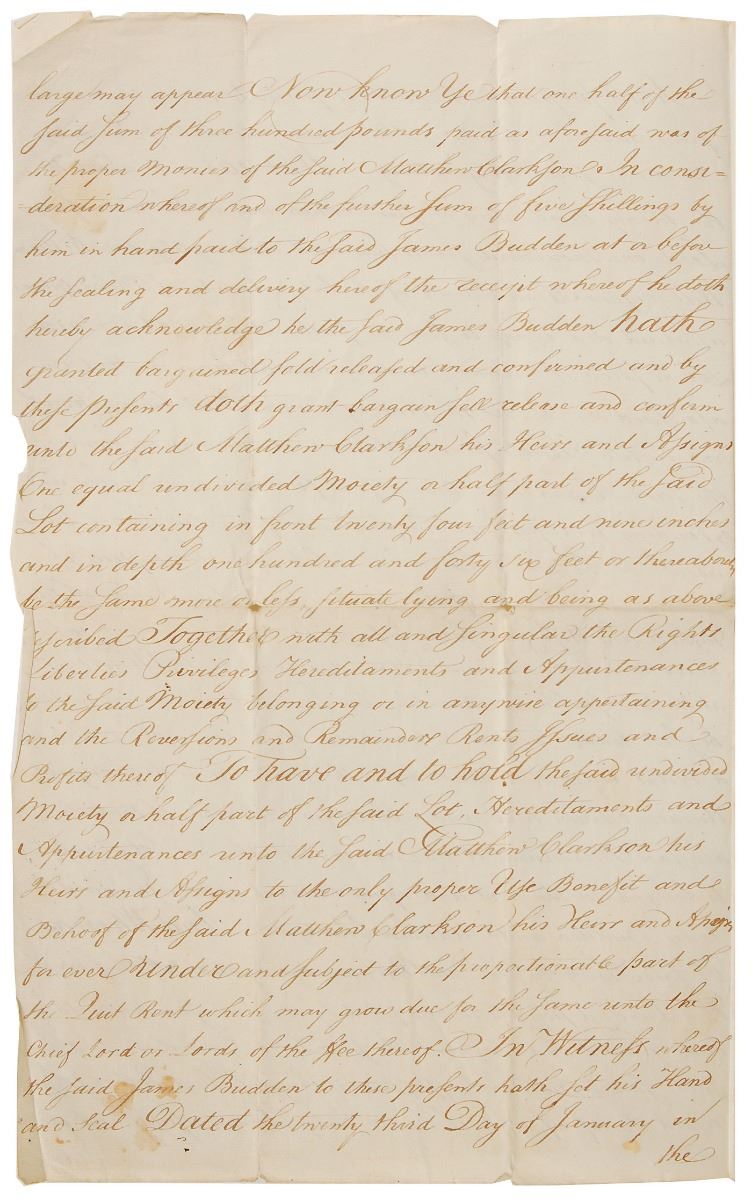 large may appear Now know Ye that one half of the
said Sum of three hundred pounds paid as aforesaid was of
the proper Monies of the said Matthew Clarkson In consi=
=deration whereof and of the further Sum of five Shillings by
him in hand paid to the said James Budden at or before
the sealing and delivery hereof the receipt whereof he doth
hereby acknowledge he the said James Budden hath
granted bargained sold released and confirmed and by
these Presents doth grant bargain sell release and confirm
unto the said Matthew Clarkson his Heirs and Assigns
One equal undivided Moiety or half part of the said
Lot containing in front twenty four feet and nine inches
and in depth one hundred and forty six feet or thereabouts
be the same more or less, situate lying and being as above
scribed Together with all and singular the Rights
Liberties Privileges Hereditaments and Appurtenances
to the said Moiety belonging or in anywise appertaining
and the Reversions and Remainders Rents Issues and
Profits thereof To have and to hold the said undivided
Moiety or half part of the said Lot, Hereditaments and
Appurtenances unto the said Matthew Clarkson his
Heirs and Assigns to the only proper Use Benefit and
Behoof of the said Matthew Clarkson his Heirs and Assigns
for ever Under and subject to the proportionable part of
the Quit Rent which may grow due for the same unto the
Chief Lord or Lords of the fee thereof. In Witness whereof
the said James Budden to these presents hath set his Hand
and Seal Dated the twenty third Day of January in
the